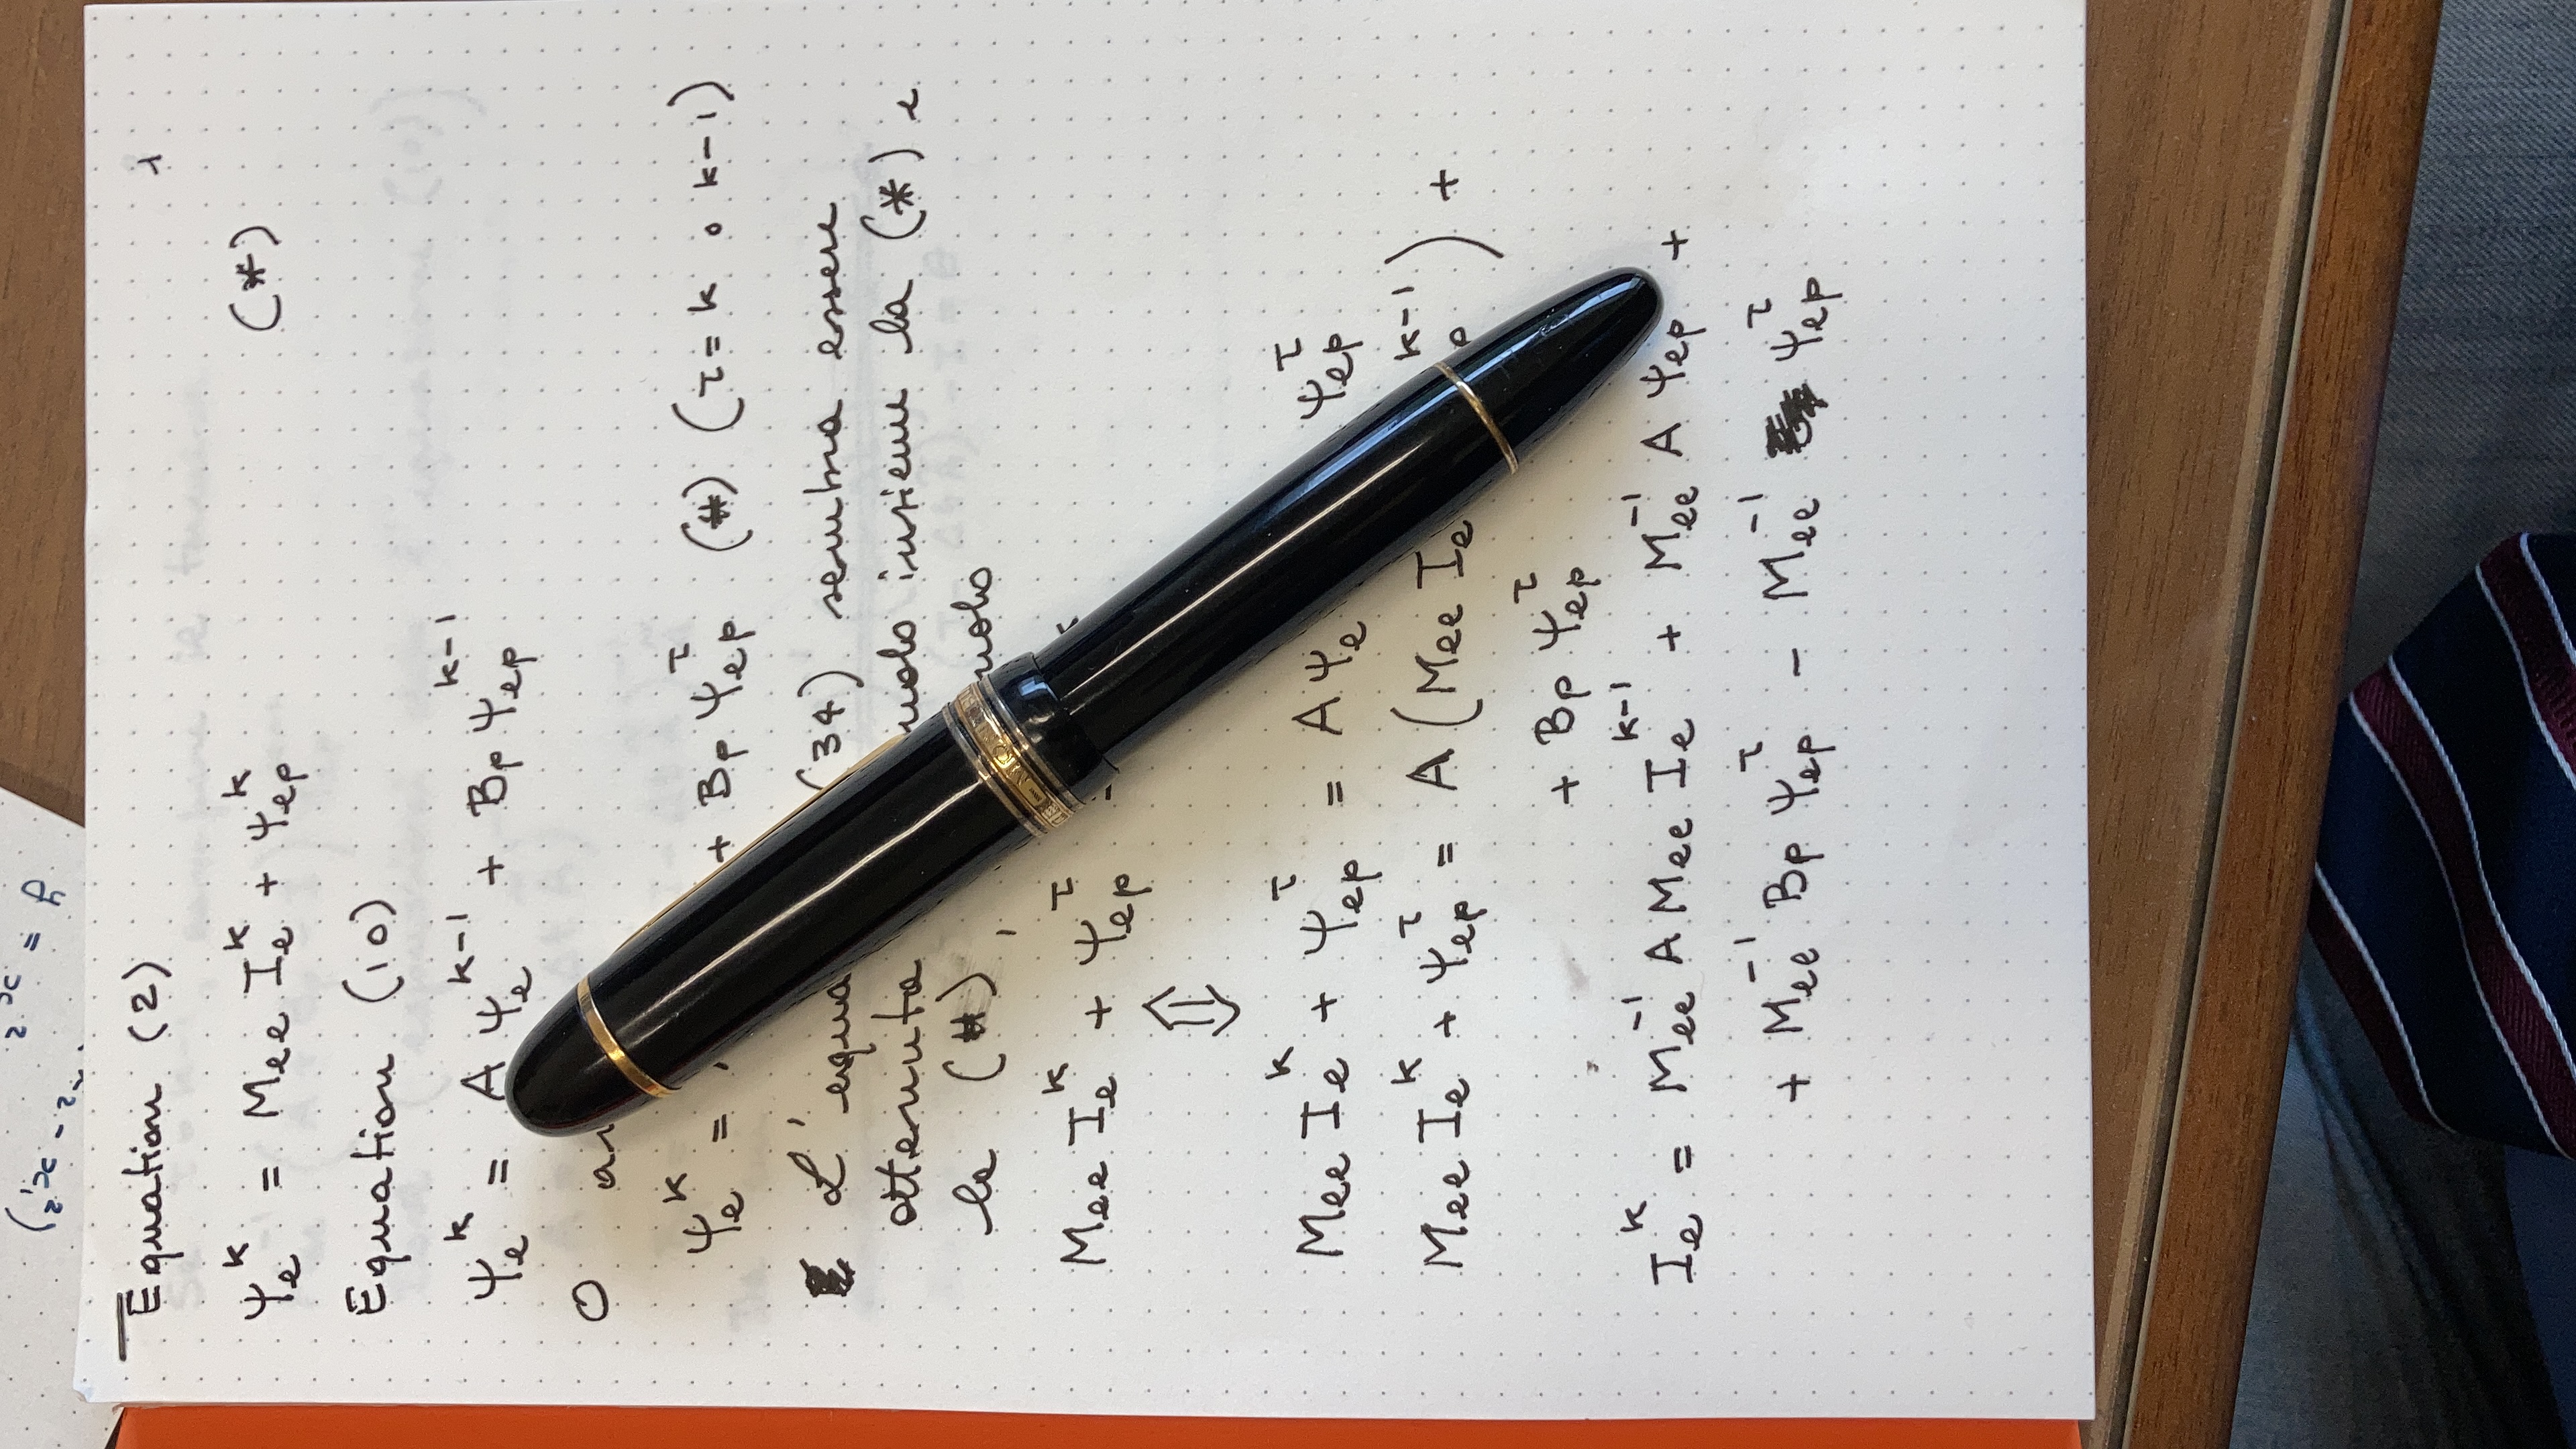 Equation (2)
ψₑᵏ = Mₑₑ Iₑᵏ + ψₑₚᵏ (*)
Equation (10)
ψₑᵏ = A ψₑᵏ⁻¹ + Bₚ ψₑₚᵏ⁻¹
O
ψₑᵏ = + Bₚ ψₑₚ^τ (#) (τ = k o k-1)
L' (34) sembra essere
ottenuta insieme la (*) e
la (#)
Mₑₑ Iₑᵏ + ψₑₚ^τ
⇕
Mₑₑ Iₑᵏ + ψₑₚ^τ = A ψₑ ψₑₚ^τ
Mₑₑ Iₑᵏ + ψₑₚ^τ = A (Mₑₑ Iₑ k-1) +
+ Bₚ ψₑₚ^τ
Iₑᵏ = Mₑₑ⁻¹ A Mₑₑ Iₑᵏ⁻¹ + Mₑₑ⁻¹ A ψₑₚ +
+ Mₑₑ⁻¹ Bₚ ψₑₚ^τ - Mₑₑ⁻¹ ψₑₚ^τ